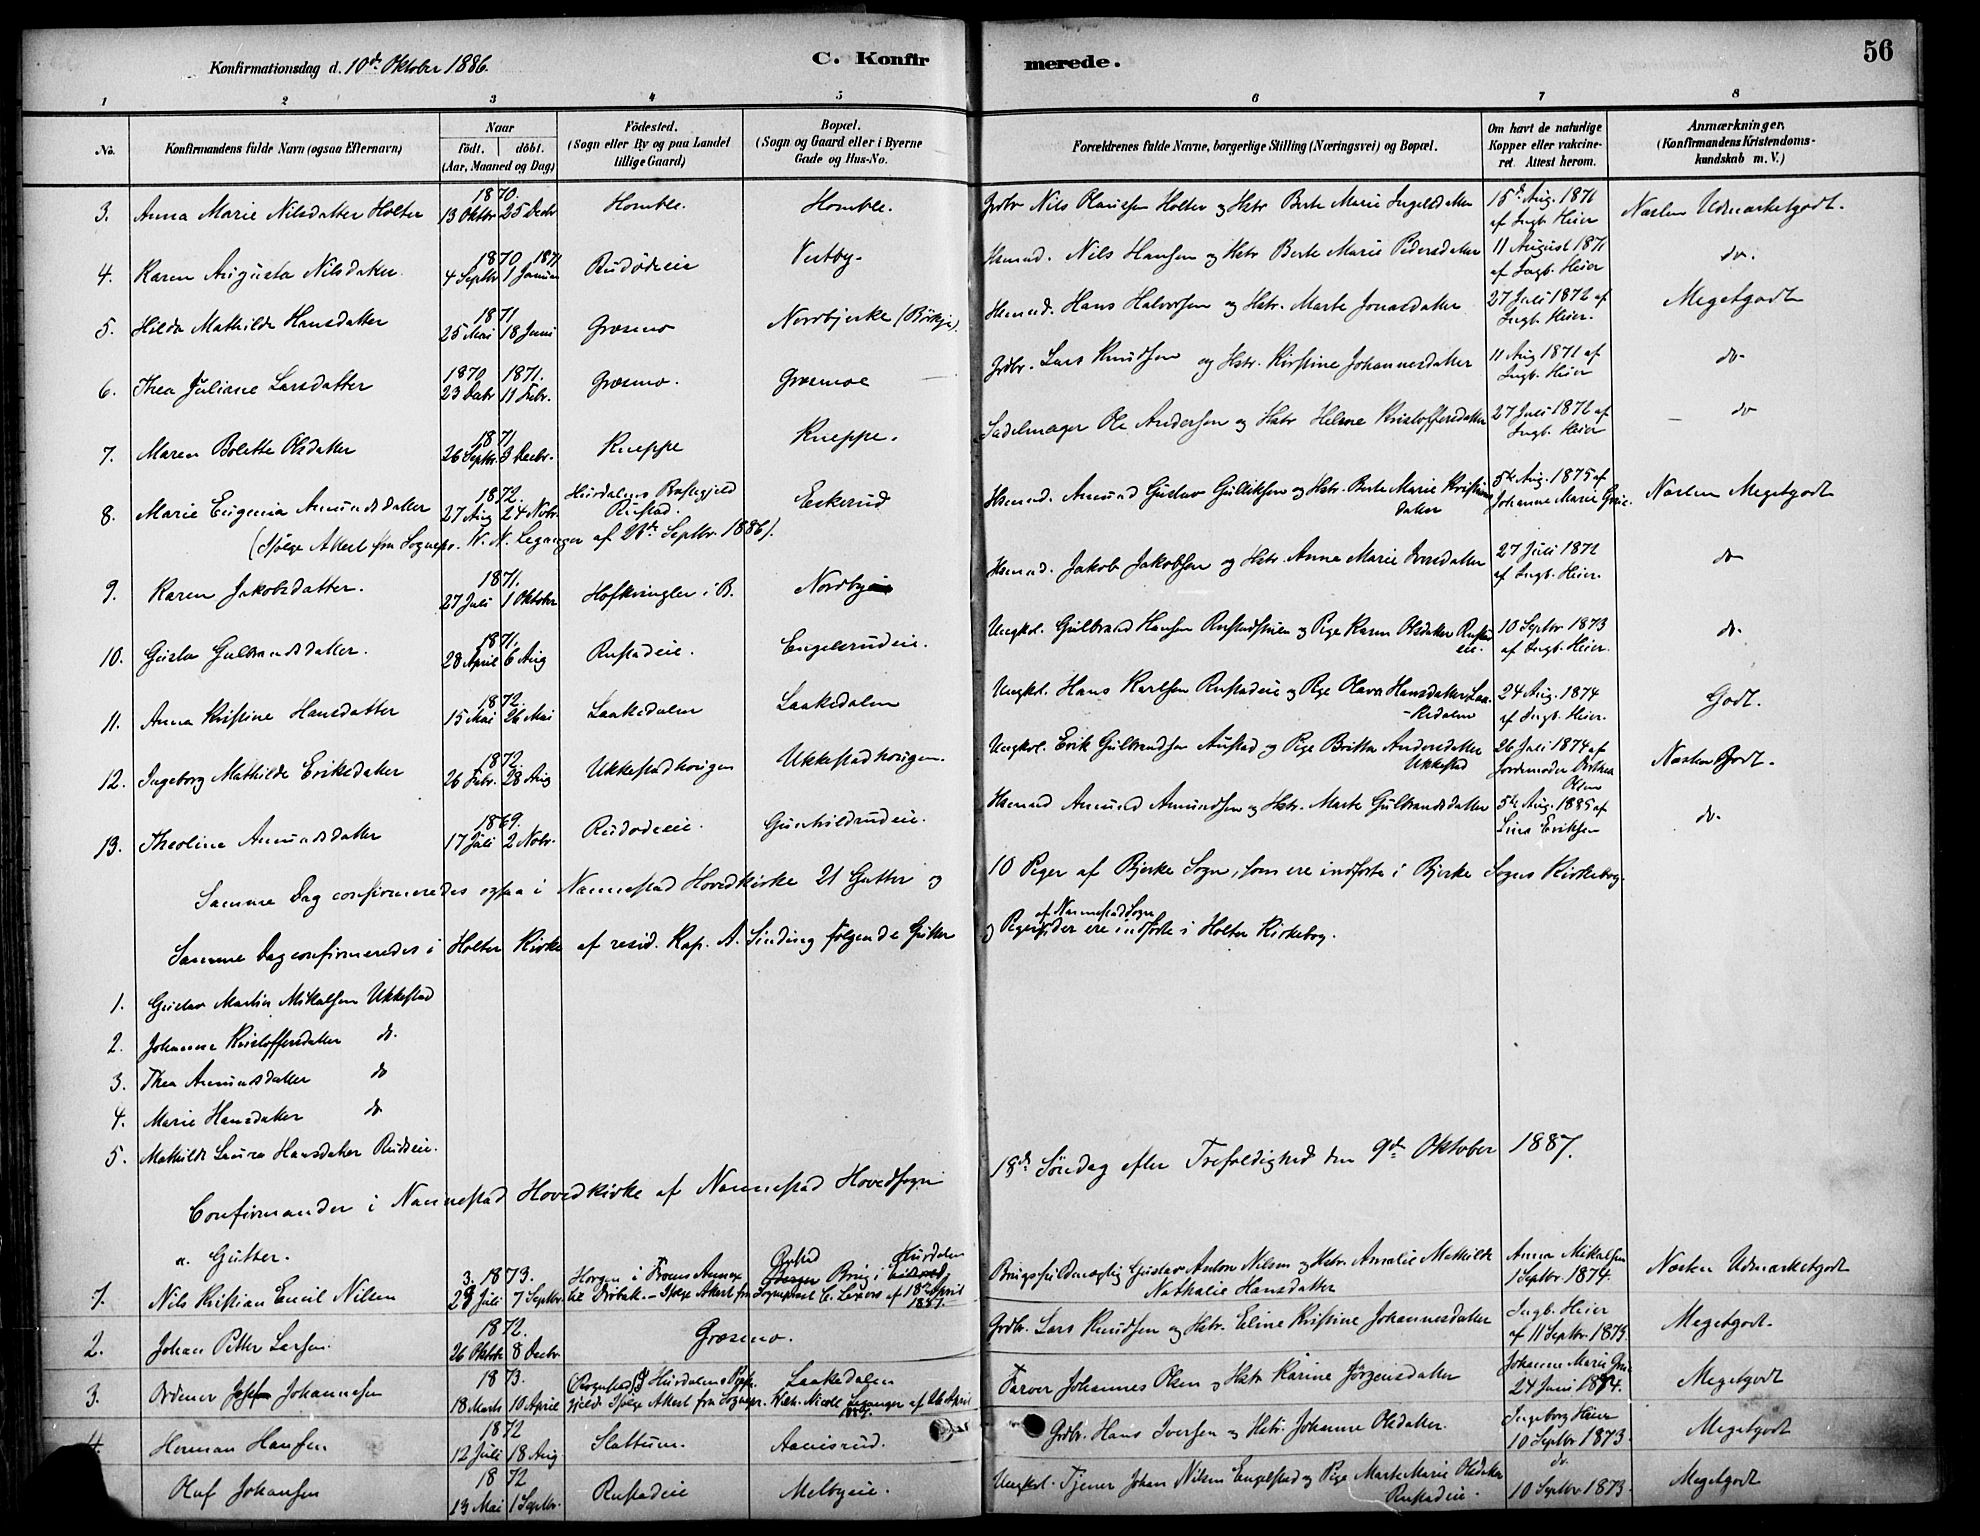 Konfirmationsdag d. 10de Oktober 1886.
C. Konfirmerede.
56
1 2 3 4 5 6 7 8
No. Konfirmandens fulde Navn (ogsaa Efternavn) Naar født. døbt. (Aar, Maaned og Dag) Fødested. (Sogn eller By og paa Landet tillige Gaard) Bopæl. (Sogn og Gaard eller i Byerne Gade og Hus-No. Forældrenes fulde Navne, borgerlige Stilling (Næringsvei) og Bopæl. Om havt de naturlige Kopper eller vakcineret. Attest herom. Anmærkninger, (Konfirmandens Kristendomskundskab m. V.)
3. Anna Marie Nilsdatter Holter 1870. 13 Oktbr 25 Decbr Homble. Homble. Grdbr Nils Olausen Holter og Hstr. Berte Marie Ingelsdatter 15de Aug. 1871 af Ingb. Heier Næsten Udmærketgodt.
4. Karen Augusta Nilsdatter. 1870 1871 4 Septbr 1 Januar Rudødeie Vestby Hsmnd. Nils Hansen og Hstr Berte Marie Pedersdatter 11 August 1871 af Ingb. Heier do.
5. Hilda Mathilde Hansdatter 1871 25 Mai 18 Juni Græsmo Nordbjerke (Bjerkje). Hsmnd. Hans Halvorsen og Hstr. Marte Jonasdatter 27 Juli 1872 af Ingb. Heier. Megetgodt
6. Thea Juliane Larsdatter 1870 1871. 23 Decbr 11 Febr. Græsmo. Græsmoe Grdbr. Lars Knudsen og Hstr. Kirstine Johannesdatter 11 Aug 1871 af Ingb. Heier do
7. Maren Bolette Olsdatter 1871 26 Septbr. 3 Decbr. Kneppe Kneppe. Sadelmager Ole Andersen og Hstr Helene Kristoffersdatter 27 Juli 1872 af Ingb. Heier do
8. Marie Eugenia Amundsdatter 1872. 27 Aug 24 Novbr Hurdalens Præstegjeld Rustad. Eskerud Hsmnd. Amund Gustav Gulliksen og Hstr. Berte Marie Kristiansdatter 5te Aug. 1875 af Johanne Marie Grue. Næsten Megetgodt
(Ifølge Attest fra Sognepr. W. N. Leganger af 28de Septbr. 1886).
9. Karen Jakobsdatter. 1871. 27 Juli 1 Oktober Hofkvingler i B. Nordby Hsmnd. Jakob Jakobsen og Hstr. Anna Marie Iversdatter 27 Juli 1872 af Ingb. Heier. do
10. Gusta Gulbrandsdatter. 1871. 28 April 6 Aug Rustadeie. Engelsrudeie. Ungkl. Gulbrand Hansen Rustadstuen og Pige Karen Olsdatter Rustadeie. 10 Septbr 1873 af Ingb. Heier. do.
11. Anna Kristine Hansdatter 1872. 15 Mai 26 Mai Laakedalen Laakedalen Ungkl. Hans Karlsen Rustadeie og Pige Olava Hansdatter Laakedalen 24 Aug. 1874 af Ingb. Heier. Godt.
12. Ingeborg Mathilde Eriksdatter 1872. 26 Febr. 28 Aug Ukkestadhougen Ukkestadhougen. Ungkl. Erik Gulbrandsen Austad og Pige Britta Andersdatter Ukkestad 26 Juli 1874 af Jordemoder Dorthea Olsen Næsten Godt.
13. Theoline Amundsdatter 1869. 17 Juli 2 Novbr. Rudødeeie. Gunhildrudeie. Hsmnd Amund Amundsen og Hstr. Marte Gulbrandsdatter 5te Aug. 1885 af Lina Eriksen do.
Samme Dag confirmeredes ogsaa i Nannestad Hovedkirke 21 Gutter og 10 Piger af Bjerke Sogn, som ere indførte i Bjerke Sogns Kirkebog.
Samme Dag confirmeredes i Holter Kirke af resid. Kap. A. Sinding følgende Gutter og Piger af Nannestad Sogn, der ere indførte i Holter Kirkebog.
1. Gustav Martin Mikalsen Ukkestad
2. Johanne Kristoffersdatter do.
3. Thea Amundsdatter do
4. Marie Hansdatter do
5. Mathilde Laura Hansdatter Rudseie.
Confirmander i Nannestad Hovedkirke af Nannestad Hovedsogn 18de Søndag efter Trefoldighed den 9de Oktober 1887.
a. Gutter.
1. Nils Kristian Emil Nilsen 3. 1873. 28 Juli 7 Septbr. Horgen i Froens Annex til Drøbak. - Ifølge Attest fra Sognepræst C. af 18de April 1887. Rustad Brug i Hurdalen Brugsfuldmægtig Gustav Anton Nilsen og Hstr. Amalie Mathilde Nathalie Hansdatter Anna Mikalsen 1 Septbr. 1874. Næsten Udmærketgodt
2. Johan Petter Larsen. 1872. 26 Oktober 8 Decbr. Græsmo. Grdbr. Lars Knudsen og Hstr. Eline Kristine Johannesdatter Ingb. Heier af 11 Septbr. 1873. Megetgodt.
3. Ordener Johannesen 1873. 18 Marts 10 April (Rognstad) i Hurdalens Præstegjeld. Ifølge Attest fra Sognepr. Wilh. Nicolai Leganger af April 1887. Laakedalen Farver Johannes Olsen og Hstr Karine Jørgensdatter Johanne Marie Grue 24 Juni 1874. Megetgodt
4. Herman Hansen 1872 12 Juli 18 Aug. Slattum. Aamisrud. Grdbr. Hans Iversen og Hstr. Johanne Olsdatter. Ingeborg Heier 10 Septbr 1873. Megetgodt
Oluf Johansen 1872 13 Mai 1 Septbr. Rustadeie Melbyeie. Ungkl. Tjener Johan Nilsen Engelstad og Pige Marte Marie Olsdatter Rustadeie. do. 10 Septbr 1873. Megetgodt